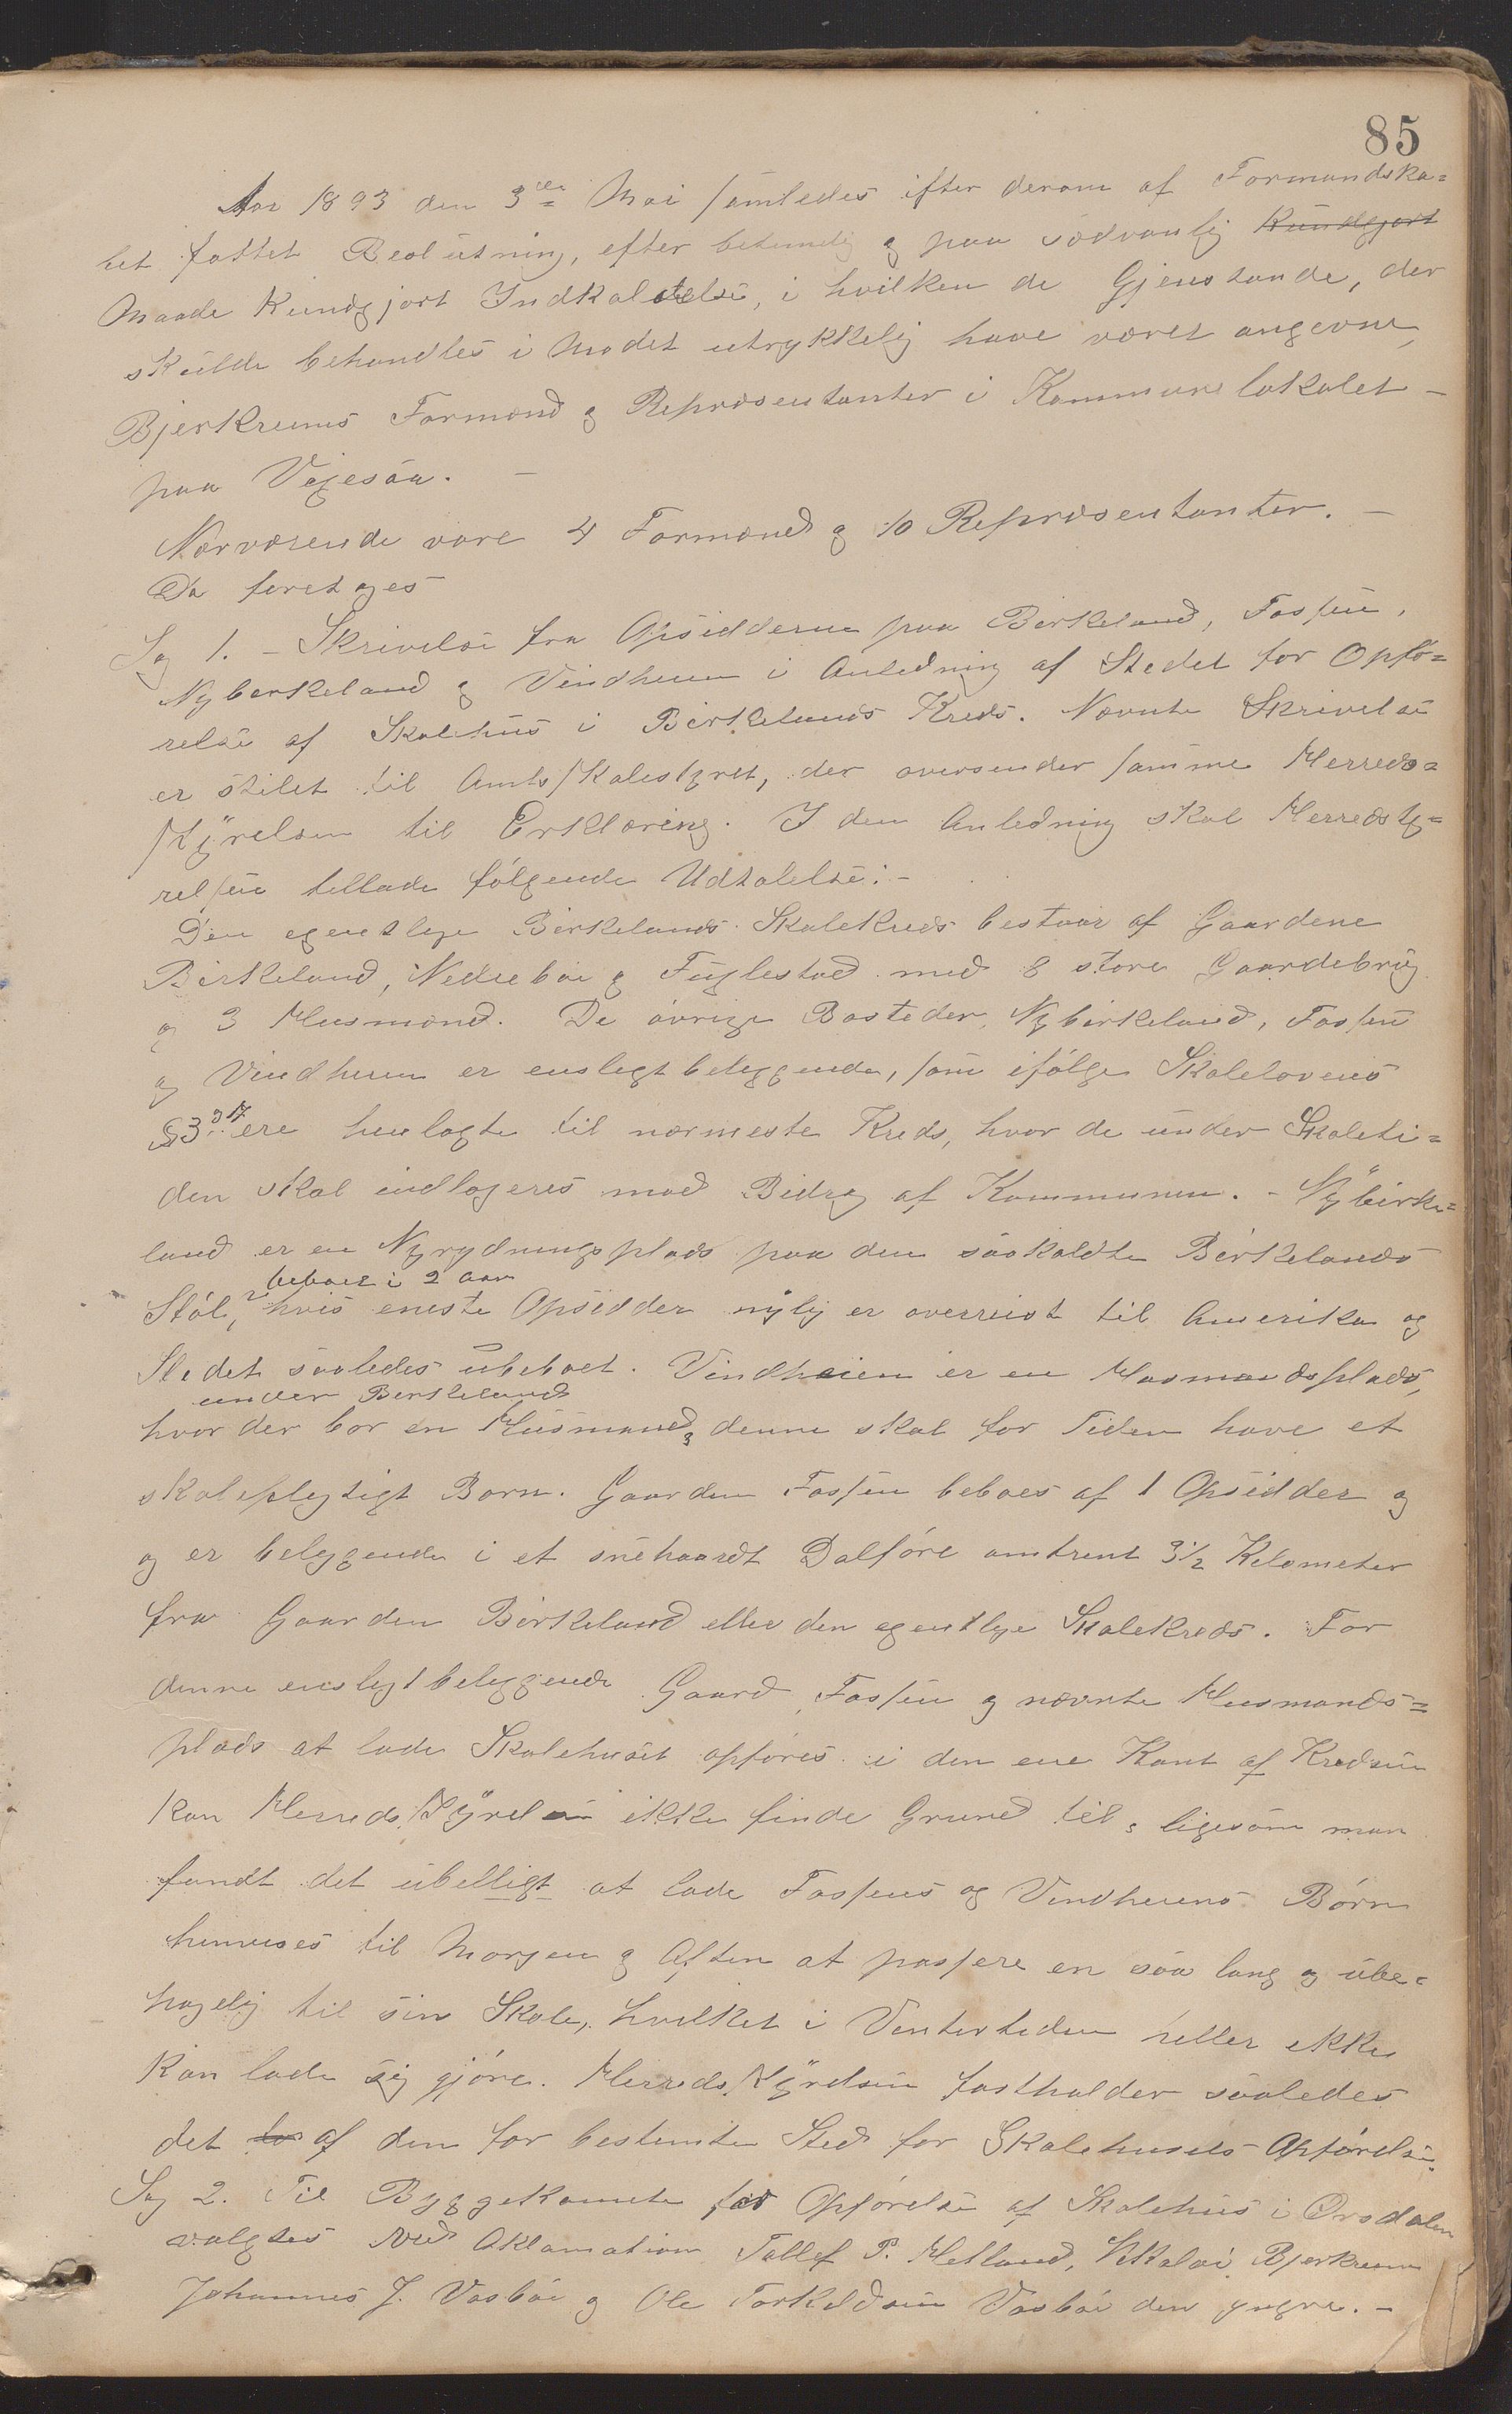 85
Aar 1893 den 3die Mai samledes ifter derom af Formandska=
bet fattet Beslutning, efter betimelig og paa sædvanlig Kundgjort
Maade Kundgjort Indkaldelse, i hvilken de Gjenstande, der
skulde behandles i Mødet utrykkelig have været angevne,
Bjerkreims Formænd og Repræsentanter i Kommunelokalet -
paa Vigesaa. -
Nærværende vare 4 Formænd og 10 Repræsentanter. -
Da foretoges
Sag 1. - Skrivelse fra Opsidderne paa Birkeland, Tossen,
Nyberkeland og Vindheien i Anledning af Stedet for Opfø=
relse af Skolehus i Birkelands Kreds. Nævnte Skrivelse
er stilet til Amtsskolestyret, der oversender samme Herreds=
styrelsen til Erklæring. I den Anledning skal Herredsty=
relsen tillade følgende Udtalelse: -
Den egentlige Birkelands Skolekreds bestaar af Gaardene
Birkeland, Nedrebø og Fuglestad med 8 store Gaardebrug
og 3 Husmænd. De øvrige Bosteder, Nybirkeland, Tossen
og Vindheien er ensligt beliggende, som ifølge Skolelovens
§3 ere henlagte til nærmeste Kreds, hvor de under Skoleti=
den skal indlogeres mod Bidrag af Kommunen. - Nybirke=
land er en Nyrydningsplads paa den saakaldte Birkelands
beboet i 2 Aar
Støl, hvis eneste Opsidder nylig er overreist til Amerika og
Stedet saaledes ubeboet. Vindheien er en Husmandsplads,
under Berkeland
hvor der bor en Husmand, denne skal for Tiden have et
skolepligtigt Barn. Gaarden Tossen beboes af 1 Opsidder og
og er beliggende i et snehaardt Dalføre omtrent 3 1/2 Kilometer
fra Gaarden Birkeland eller den egentlige Skolekreds. For
denne ensligt beliggende Gaard, Tossen og nævnte Husmands=
plads at lade Skolehuset opføres i den ene Kant af Kredsen
kan Herredsstyrelsen ikke finde Grund til, ligesom man
fandt det ubilligt at lade Tossens og Vindheiens Børn
henvises til Morgen og Aften at passere en saa lang og ube=
hagelig til sin Skole, hvilket i Vintertiden heller ikke
kan lade sig gjøre. Herredsstyrelsen fastholder saaledes
det af den før bestemte Sted for Skolehusets Opførelse.
Sag 2. Til Byggekomite for Opførelse af Skolehus i Ørsdalen
valgtes ved Aklamation Tallef P. Hetland, Bjerkreim
Johannes J. Vasbø og Ole Torkildsen Vasbø den yngre. -